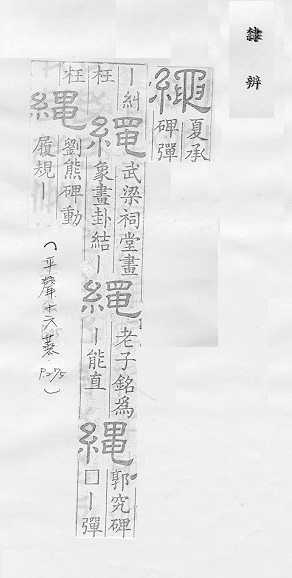 隸辨
繩夏承碑彈
丨糾枉繩武梁祠堂畫象畫卦結丨繩老子銘為丨能直繩郭究碑□丨彈
枉繩劉熊碑動履規丨
(平聲十六蒸 P.275)